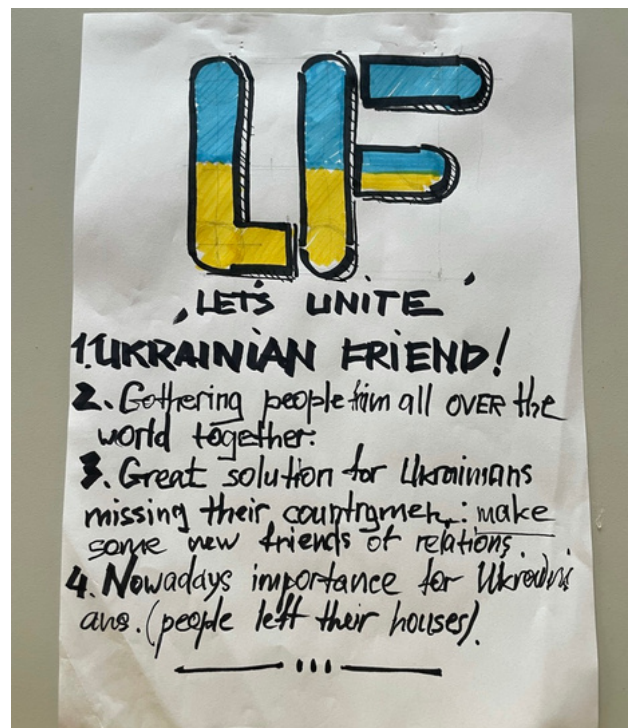 LF
LET'S UNITE
1. UKRAINIAN FRIEND!
2. Gathering people from all OVER the
world together.
3. Great solution for Ukrainians
missing their countrymen: make
some new friends of relations.
4. Nowadays importance for Ukraini
ans. (people left their houses).